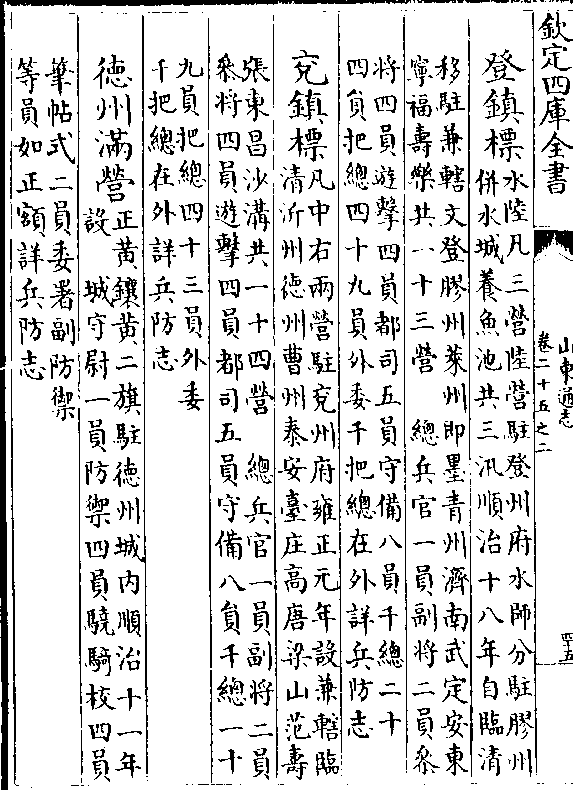 欽定四庫全書
山東通志
卷二十五之二
四十五
登鎮標水陸凡三營陸營駐登州府水師分駐膠州
併水城養魚池共三汛順治十八年自臨清
移駐兼轄文登膠州萊州即墨青州濟南武定安東
寧福壽樂共一十三營 總兵官一員副將二員叅
將四員遊擊四員都司五員守備八員千總二十
四員把總四十九員外委千把總在外詳兵防志
兖鎮標凡中右兩營駐兖州府雍正元年設兼轄臨
清沂州德州曹州泰安臺庄高唐梁山范壽
張東昌沙溝共一十四營 總兵官一員副將二員
叅將四員遊擊四員都司五員守備八員千總一十
九員把總四十三員外委
千把總在外詳兵防志
德州滿營正黃鑲黃二旗駐德州城內順治十一年
設 城守尉一員防禦四員驍騎校四員
筆帖式二員委署副防禦
等員如正額詳兵防志